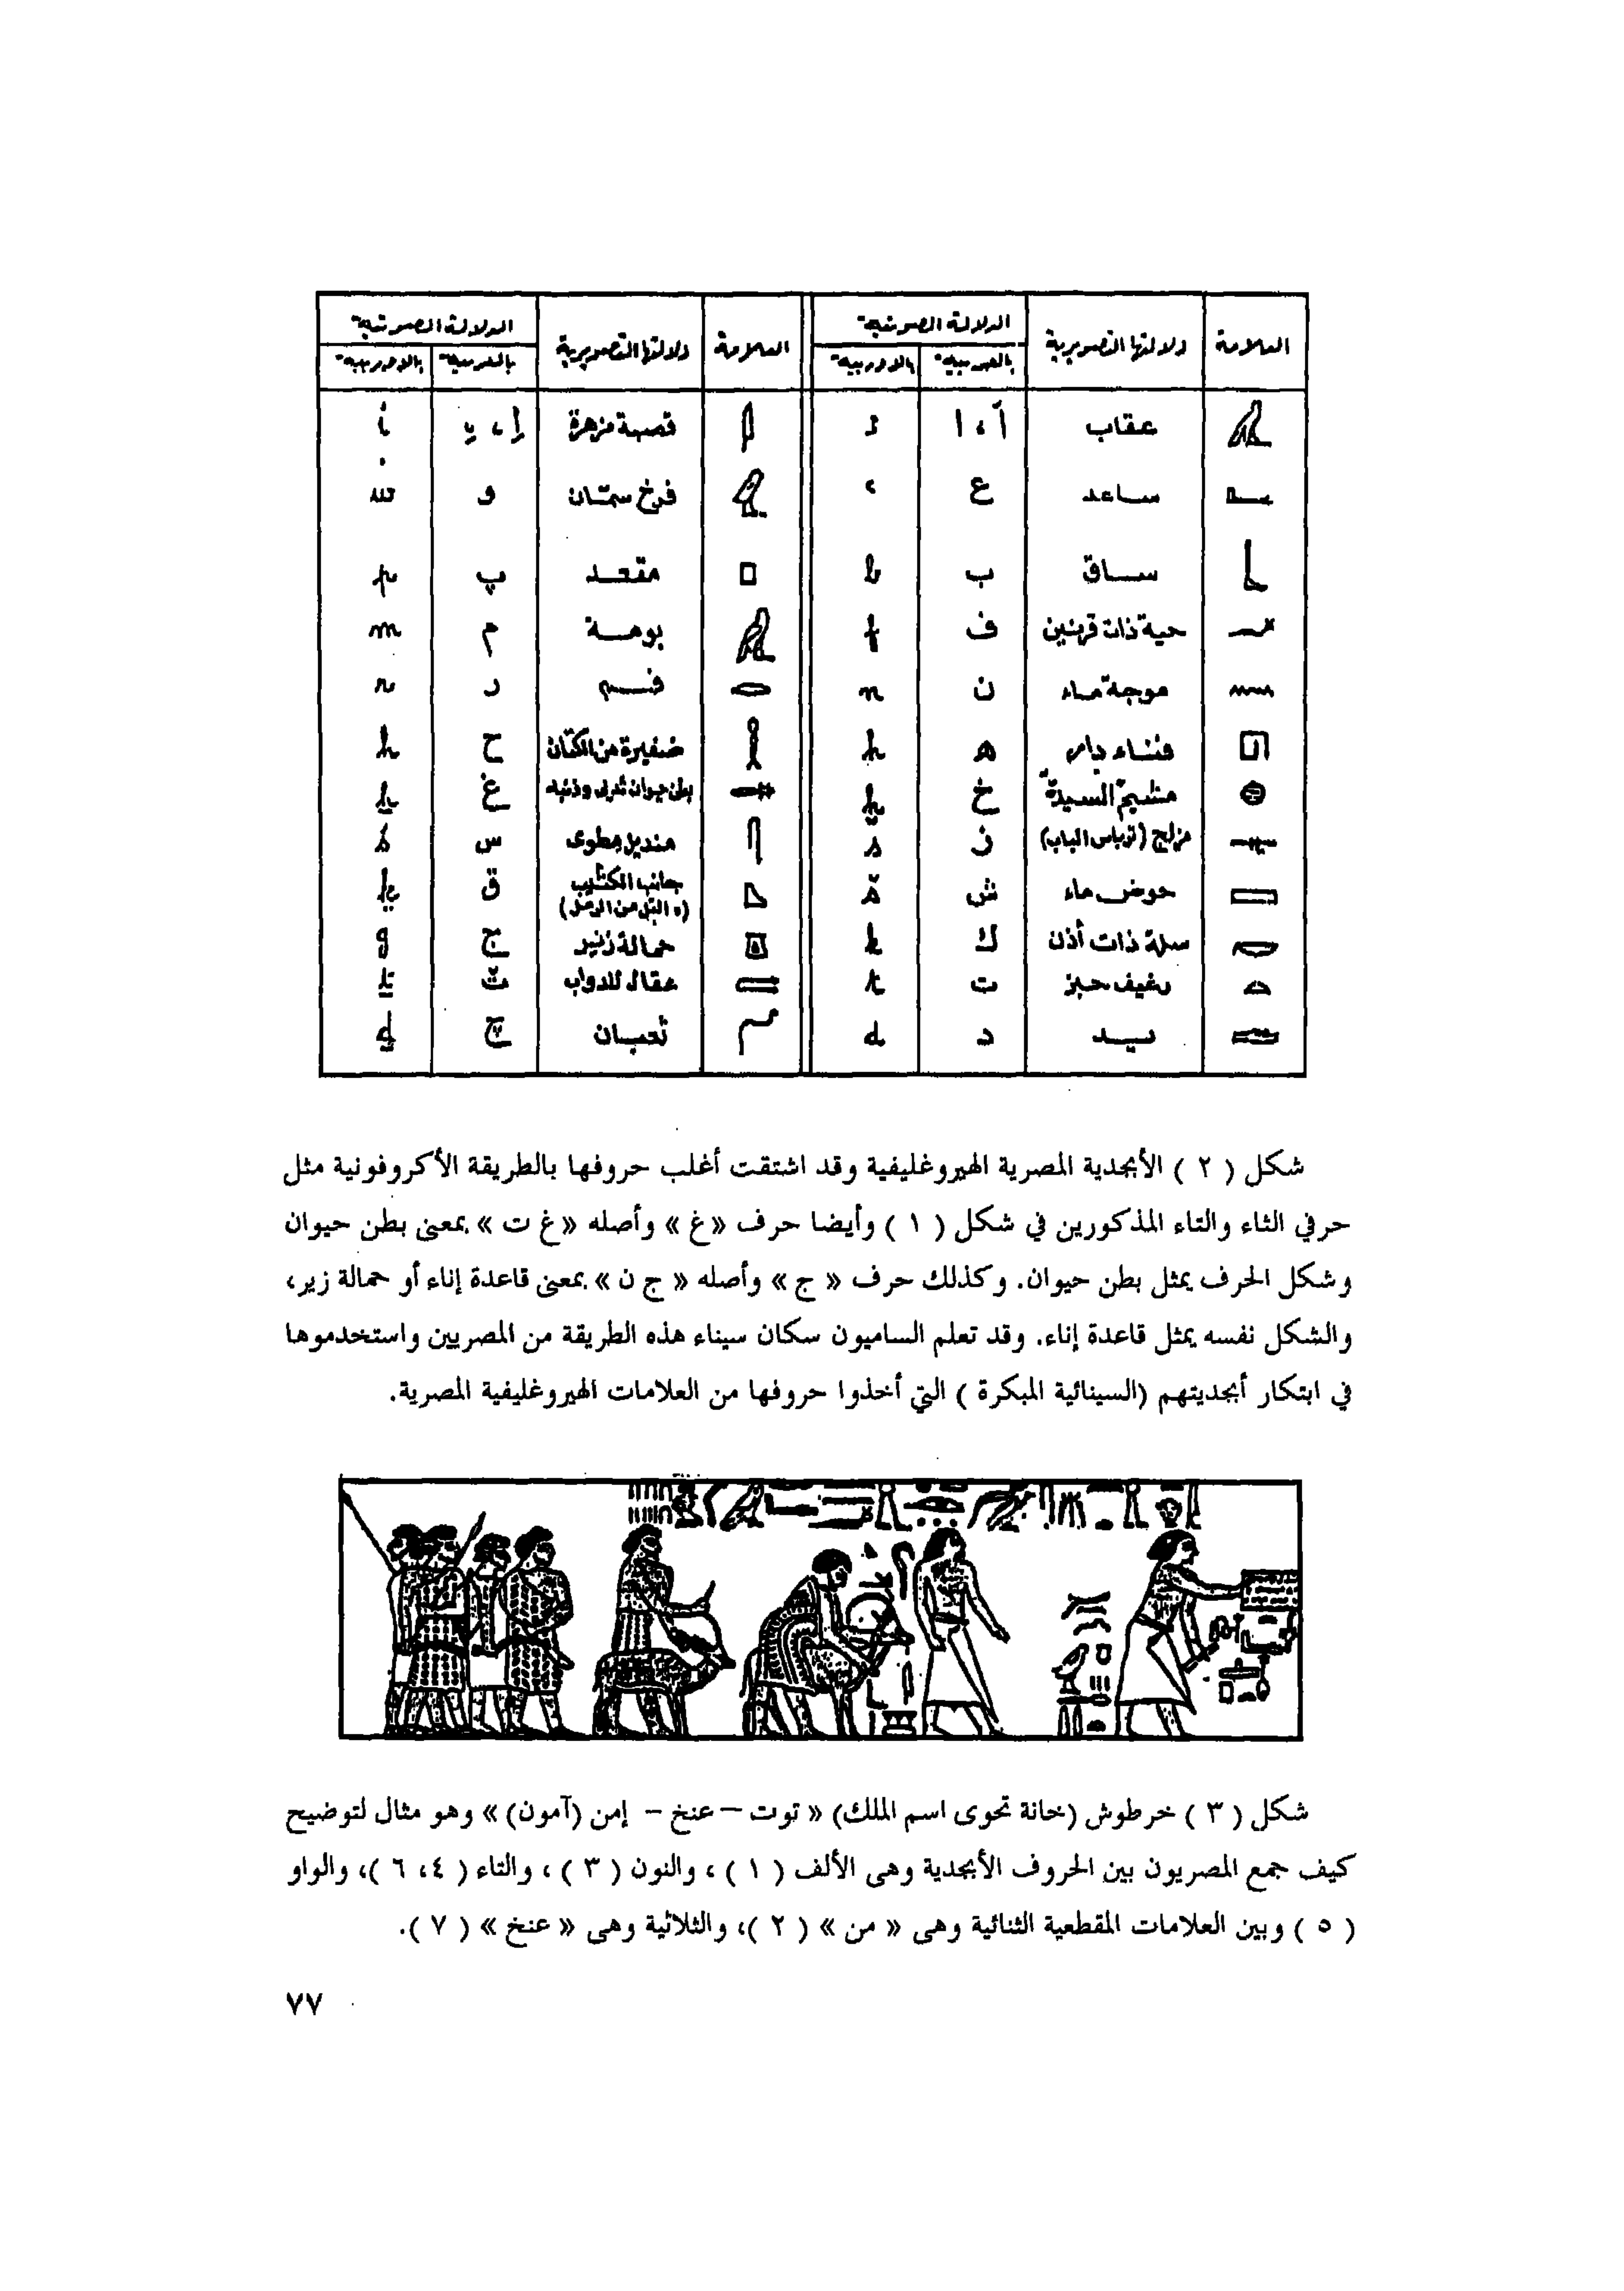 العلامة دلالتها التصويرية الدلالة الصوتية العلامة دلالتها التصويرية الدلالة الصوتية
بالعربية بالاوربية بالعربية بالاوربية
عقاب آ ، ا قصبة مزهرة إ ، ي
ساعد ع فرخ سمّان و
ساق ب b مقعد پ p
حية ذات قرنين ف f بومة م m
موجة ماء ن n فم ر r
فناء دار ه h ضفيرة من الكتان ح ḥ
خ ḫ بطن حيوان ثديى وذنبه غ ẖ
مزلاج (ترباس الباب) ز s منديل مطوى س ś
حوض ماء ش š جانب الكثيب ق ḳ
(التل من الرمل)
سلة ذات أذن ك k حمالة زير ج g
رغيف خبز ت t عقال للدواب ث ṯ
يد د d ثعبان چ ḏ
شكل ( ٢ ) الأبجدية المصرية الهيروغليفية وقد اشتقت أغلب حروفها بالطريقة الأكروفونية مثل
حرفي الثاء والتاء المذكورين في شكل ( ١ ) وأيضا حرف «غ» وأصله «غ ت» بمعنى بطن حيوان
وشكل الحرف يمثل بطن حيوان. وكذلك حرف « ج » وأصله « ج ن » بمعنى قاعدة إناء أو حمالة زير،
والشكل نفسه يمثل قاعدة إناء. وقد تعلم الساميون سكان سيناء هذه الطريقة من المصريين واستخدموها
في ابتكار أبجديتهم (السينائية المبكرة ) التي أخذوا حروفها من العلامات الهيروغليفية المصرية.
شكل ( ٣ ) خرطوش (خانة تحوى اسم الملك) « توت – عنخ – إمن (آمون) » وهو مثال لتوضيح
كيف جمع المصريون بين الحروف الأبجدية وهى الألف ( ١ ) ، والنون ( ٣ ) ، والتاء ( ٤، ٦ )، والواو
( ٥ ) وبين العلامات المقطعية الثنائية وهى « من » ( ٢ )، والثلاثية وهى « عنخ » ( ٧ ).
٧٧